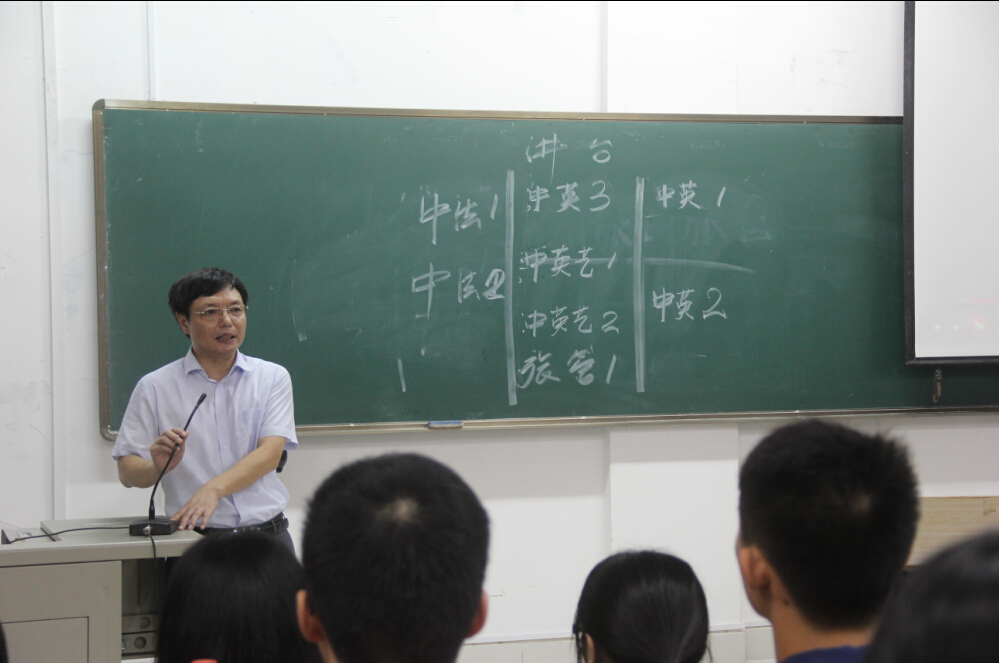 讲台
中法1 中英3 中英1
中法2 中英艺1
中英艺2 中英2
旅管1